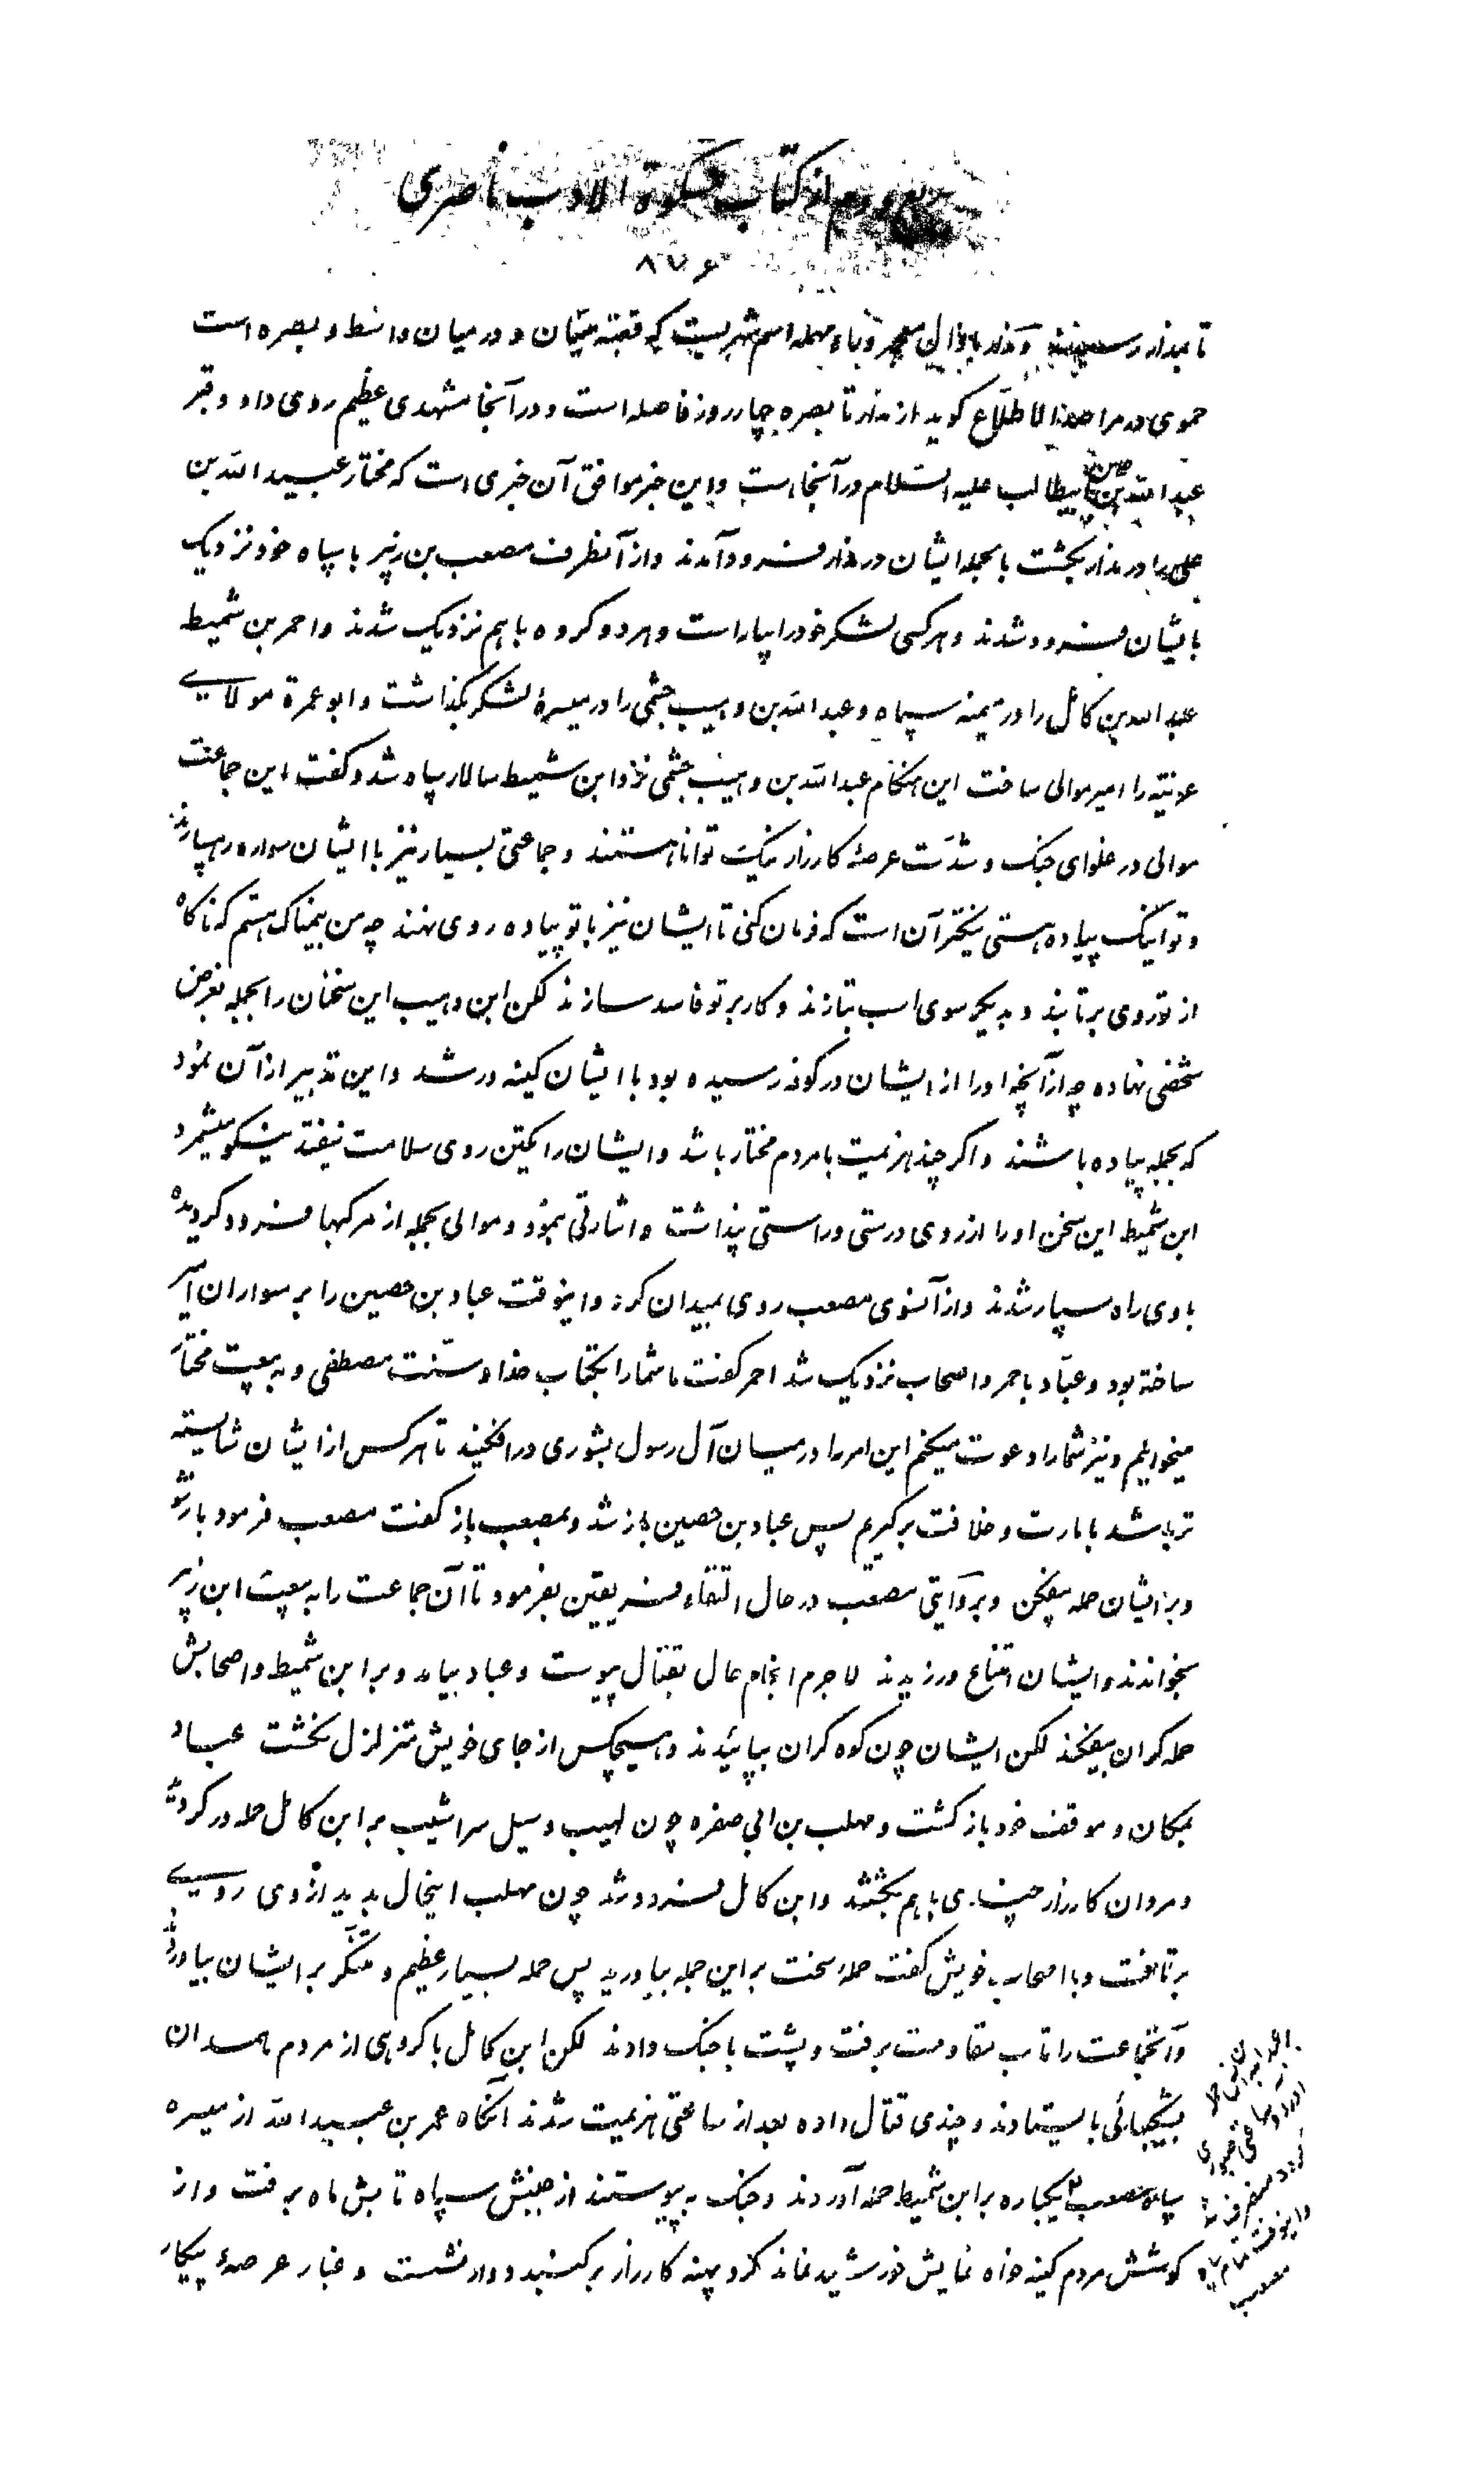 ربع دوم از کتاب مشکوة الادب ناصری
۸۷۶
تا بمذار رسیدند و مذار با ذال معجمه و راء مهمله اسم شهریست که قصبه میسان و در میان واسط و بصره است
حموی در مراصد الاطلاع کوید از مذار تا بصره چهار روز فاصله است و در آنجا مشهدی عظیم روی داد و قبر
عبدالله بن علی بن ابیطالب علیه السلام در آنجا است و این خبر موافق آن خبری است که مختار عبیدالله بن
علی را در مذار بکشت بالجمله ایشان در مذار فرود آمدند و از آنطرف مصعب بن زبیر با سپاه خود نزدیک
بایشان فرود شدند و هر کسی لشکر خود را بیاراست و هر دو کروه با هم نزدیک شدند و احمر بن شمیط
عبدالله بن کامل را در میمنه سپاه و عبدالله بن وهیب جشمی را در میسرهٔ لشکر بگذاشت و ابو عمرة مولای
عرنیه را امیر موالی ساخت این هنکام عبدالله بن وهیب جشمی نزد ابن شمیط سالار سپاه شد و کفت این جماعت
موالی در غلوای جنک و شدت عرصهٔ کارزار نیک توانا هستند و جماعتی بسیار نیز با ایشان سواره رهسپارند
و تو اینک پیاده هستی نیکتر آن است که فرمان کنی تا ایشان نیز با تو پیاده روی نهند چه من بیمناک هستم که ناکاه
از تو روی برتابند و بدیکر سوی اسب بتازند و کار بر تو فاسد سازند لکن ابن وهیب این سخنان را بجمله بغرض
شخصی نهاده چه از آنچه او را از ایشان در کوفه رسیده بود با ایشان کینه ور شد و این تدبیر از آن نمود
که بجمله پیاده باشند و اکر چند هزیمت با مردم مختار باشد و ایشان را یکتن روی سلامت نیفتد نیکو میشمرد
ابن شمیط این سخن او را از روی درستی و راستی پنداشت و اشارتی بنمود و موالی بجمله از مرکبها فرود کردیده
با وی راه سپار شدند و از آنسوی مصعب روی بمیدان کرد و اینوقت عباد بن حصین را بر سواران امیر
ساخته بود و عباد باحمر و اصحاب نزدیک شد احمر کفت ما شما را بکتاب خدا و سنت مصطفی و به بیعت مختار
میخوانیم و نیز شما را دعوت میکنیم این امر را در میان آل رسول بشوری درافکنید تا هر کس از ایشان شایسته
تر باشد بامارت و خلافت برکیریم پس عباد بن حصین باز شد و بمصعب باز کفت مصعب فرمود باز شو
و بر ایشان حمله بیفکن و بروایتی مصعب در حال التقاء فریقین بفرمود تا آن جماعت را به بیعت ابن زبیر
بخواندند و ایشان امتناع ورزیدند لاجرم انجام حال بقتال پیوست و عباد بیامد و بر ابن شمیط و اصحابش
حمله کران بیفکند لکن ایشان چون کوه کران بپائیدند و هیچکس از جای خویش متزلزل نکشت عباد
بمکان و موقف خود باز کشت و مهلب بن ابی صفره چون لهیب و سیل سراشیب بر ابن کامل حمله ور کردید
و مردان کارزار چندی با هم بکشتند و ابن کامل فرود شد چون مهلب اینحال بدید از وی روی
برتافت و با اصحاب خویش کفت حملهٔ سخت بر این جمله بیاورید پس حمله بسیار عظیم و منکر بر ایشان بیاوردند
و آنجماعت را تاب مقاومت برفت و پشت با جنک دادند لکن ابن کامل با کروهی از مردم همدان
بشکیبائی بایستادند و چندی قتال داده بعد از ساعتی هزیمت شدند آنکاه عمر بن عبیدالله از میسره
سپاه مصعب یکباره بر ابن شمیط حمله آوردند و جنک به پیوستند از جنبش سپاه تابش ماه برفت و از
کوشش مردم کینه خواه نمایش خورشید نماند کرد پهنه کارزار بر کنبد دوار نشست و غبار عرصهٔ پیکار
و اینوقت تمام سپاه
مصعب